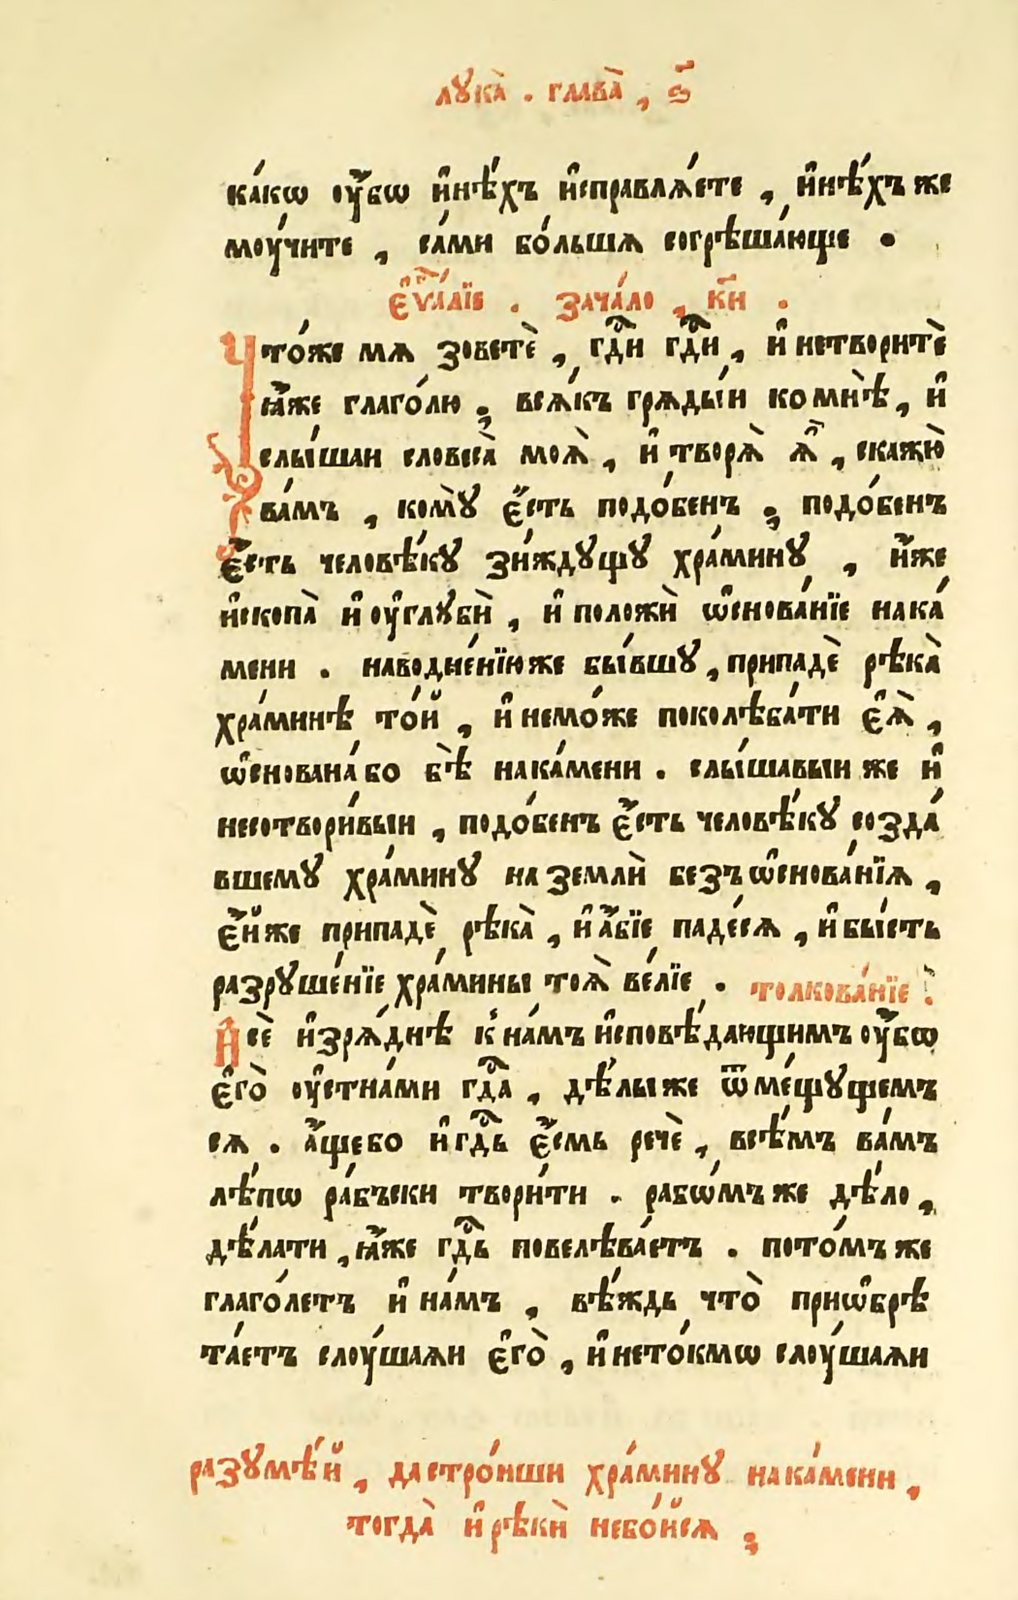 лꙋка̀ . глава̀ , ѕ҃
ка́кѡ ᲂу҆́бѡ и҆нѣ́хъ и҆справлѧ́ете , и҆нѣ́хъ же
мꙋ́чите , са́ми бо́льшѧ согрѣша́юще .
є҆ѵⷢ҇а́лїе . зача́ло , к҃и .
Что́же мѧ зоветѐ , гдⷭ҇и гдⷭ҇и , и҆ нетворитѐ
ꙗ҆́же глаго́лю ; всѧ́къ грѧды́и комнѣ̀ , и҆
слы́шаи словеса̀ моѧ̀ , и҆ творѧ̀ ѧ҆̀ , скажꙋ̀
ва́мъ , комꙋ̀ є҆́сть подо́бенъ ; подо́бенъ
є҆́сть человѣ́кꙋ зи́ждꙋщꙋ хра́минꙋ , и҆́же
и҆скопа̀ и҆ ᲂу҆глꙋбѝ , и҆ положѝ ѡ҆снова́нїе нака́
мени . наводне́нїю же бы́вшꙋ , припадѐ рѣка̀
хра́минѣ то́й , и҆ немо́же поколѣба́ти є҆ѧ̀ ,
ѡ҆снована́ бо бѣ̀ нака́мени . слы́шавыи же и҆
несотвори́выи , подо́бенъ є҆́сть человѣ́кꙋ созда́
вшемꙋ хра́минꙋ на землѝ безъ ѡ҆снова́нїѧ ,
є҆́йже припадѐ рѣка̀ , и҆ а҆́бїе паде́сѧ , и҆ бы́сть
разрꙋше́нїе хра́мины тоѧ̀ ве́лїе . толкова́нїе :
И҆ сѐ и҆зрѧ́днѣ к̾ на́мъ и҆сповѣ́дающимъ ᲂу҆́бѡ
є҆го̀ ᲂу҆стна́ми гдⷭ҇а , дѣ́лы же ѿме́щꙋщемъ
сѧ . а҆́ще бо и҆ гдⷭ҇ь є҆́смь речѐ , всѣ́мъ ва́мъ
лѣ́пѡ ра́бъски твори́ти . рабѡ́мъ же дѣ́ло ,
дѣ́лати , ꙗ҆́же гдⷭ҇ь повелѣва́етъ . пото́мъ же
глаго́летъ и҆ на́мъ , вѣ́ждь что̀ приѡ҆брѣ
та́етъ слꙋ́шаѧи є҆го̀ , и҆ нето́кмѡ слꙋ́шаѧи
разꙋмѣ́й , да стро́иши хра́минꙋ нака́мени ,
тогда̀ и҆ рѣкѝ небо́йсѧ ;